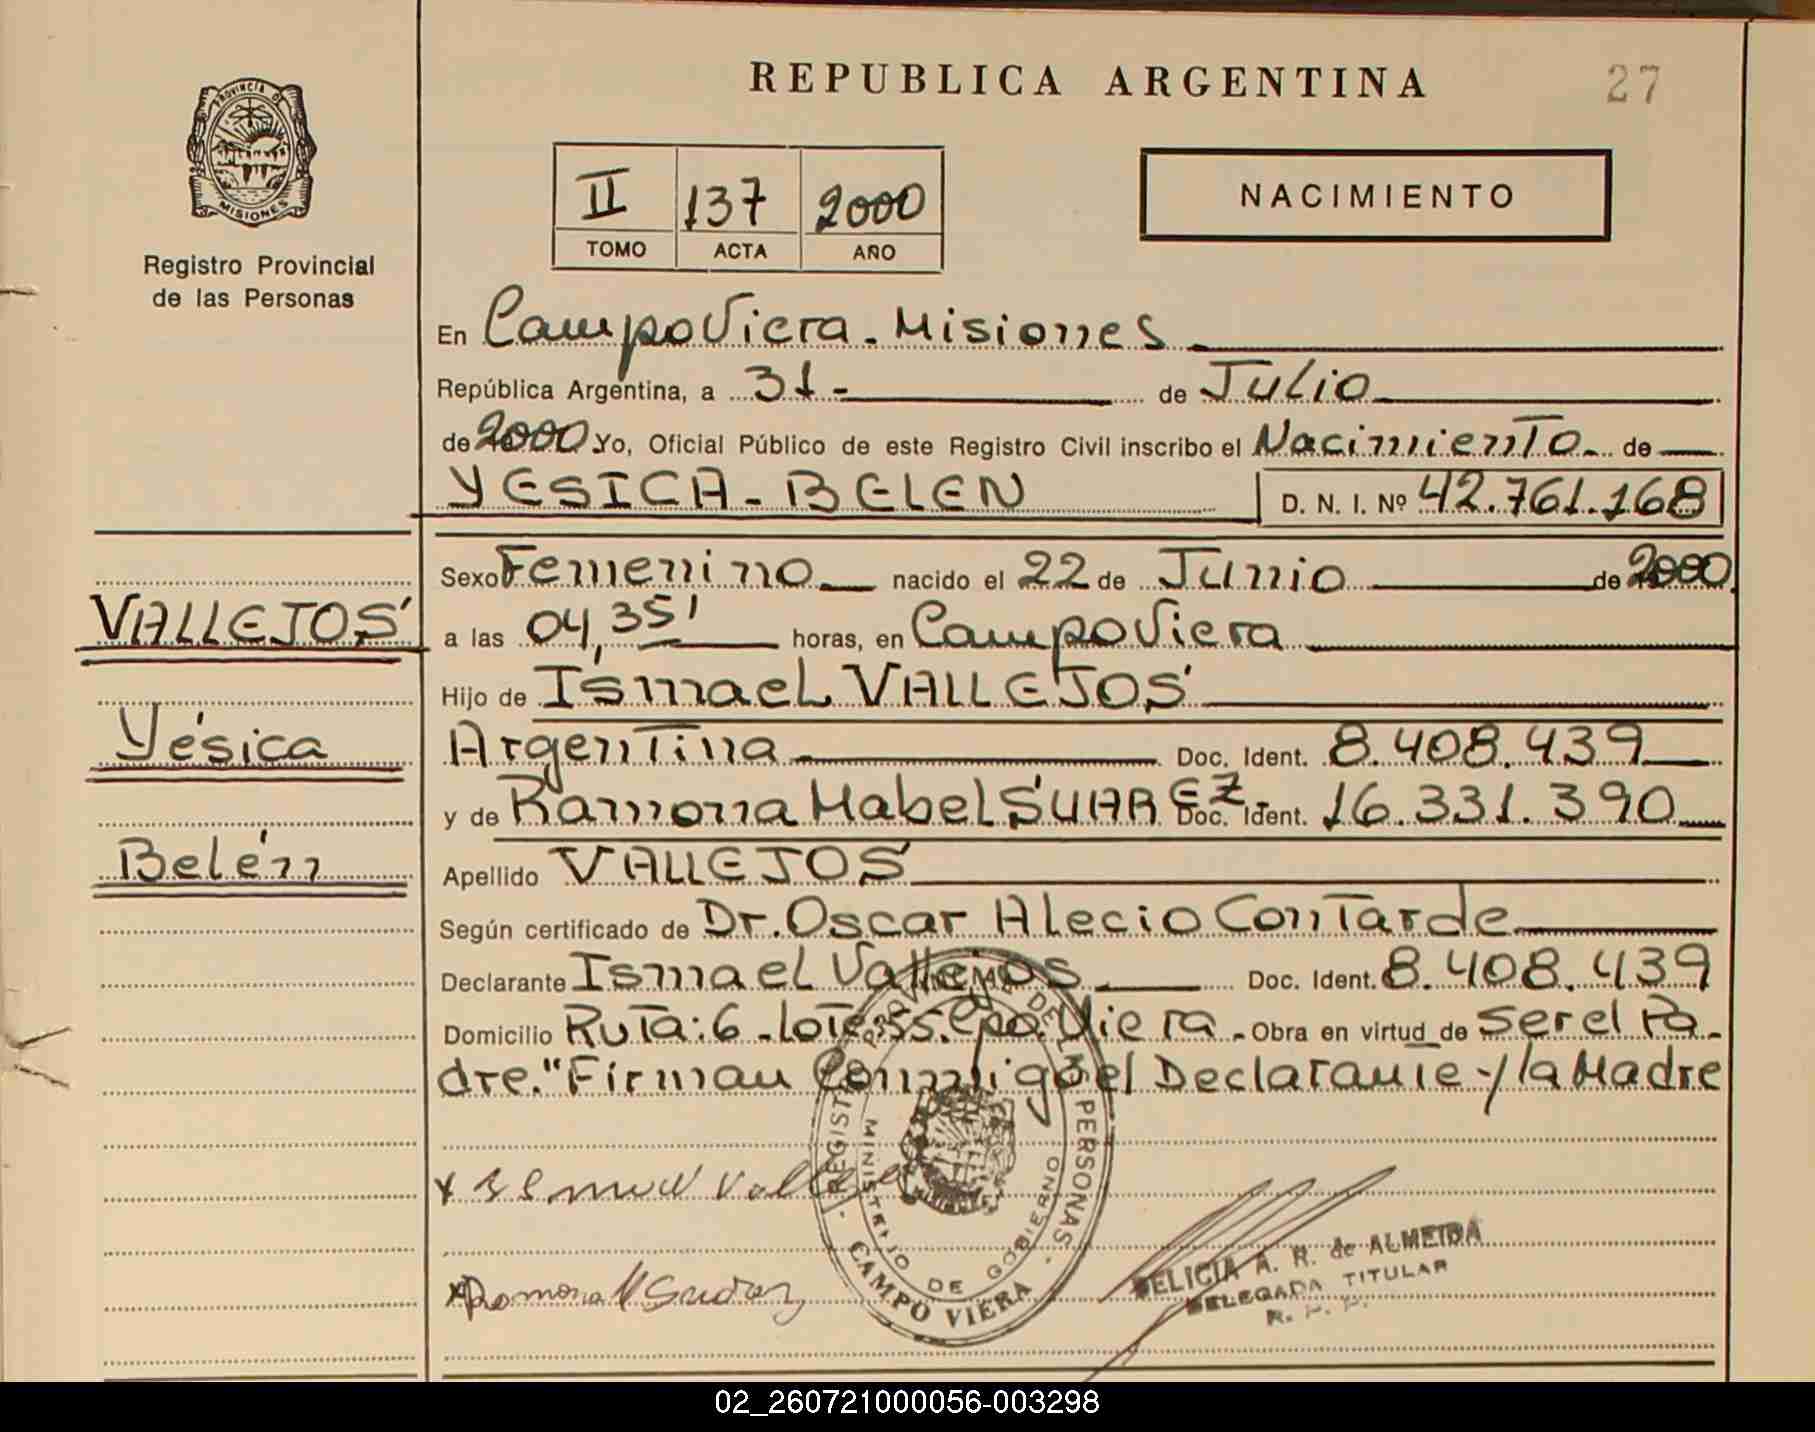 REPUBLICA ARGENTINA
27
PROVINCIA DE
MISIONES
Registro Provincial
de las Personas
II 137 2000
TOMO ACTA AÑO
NACIMIENTO
En Campo Viera - Misiones
República Argentina, a 31 - de Julio
de 2000 Yo, Oficial Público de este Registro Civil inscribo el Nacimiento de
YESICA - BELEN D. N. I. Nº 42.761.168
Sexo Femenino nacido el 22 de Junio de 2000
VALLEJOS
a las 04,35' horas, en Campo Viera
Hijo de Ismael VALLEJOS
Yésica
Argentina Doc. Ident. 8.408.439
y de Ramona Mabel SUAREZ - Doc. Ident. 16.331.390
Belén
Apellido VALLEJOS
Según certificado de Dr. Oscar Alecio Contarde
Declarante Ismael Vallejos Doc. Ident. 8.408.439
Domicilio Ruta: 6 - Lote: 55. Cpo. Viera - Obra en virtud de ser el Pa-
dre." Firman Conmigo el Declarante y la Madre
REGISTRO PROVINCIAL DE LAS PERSONAS
MINISTERIO DE GOBIERNO
CAMPO VIERA
x Ismael Vallejos
x Ramona M Suarez
DELICIA A. R. de ALMEIDA
DELEGADA TITULAR
R. P. P.
02_260721000056-003298